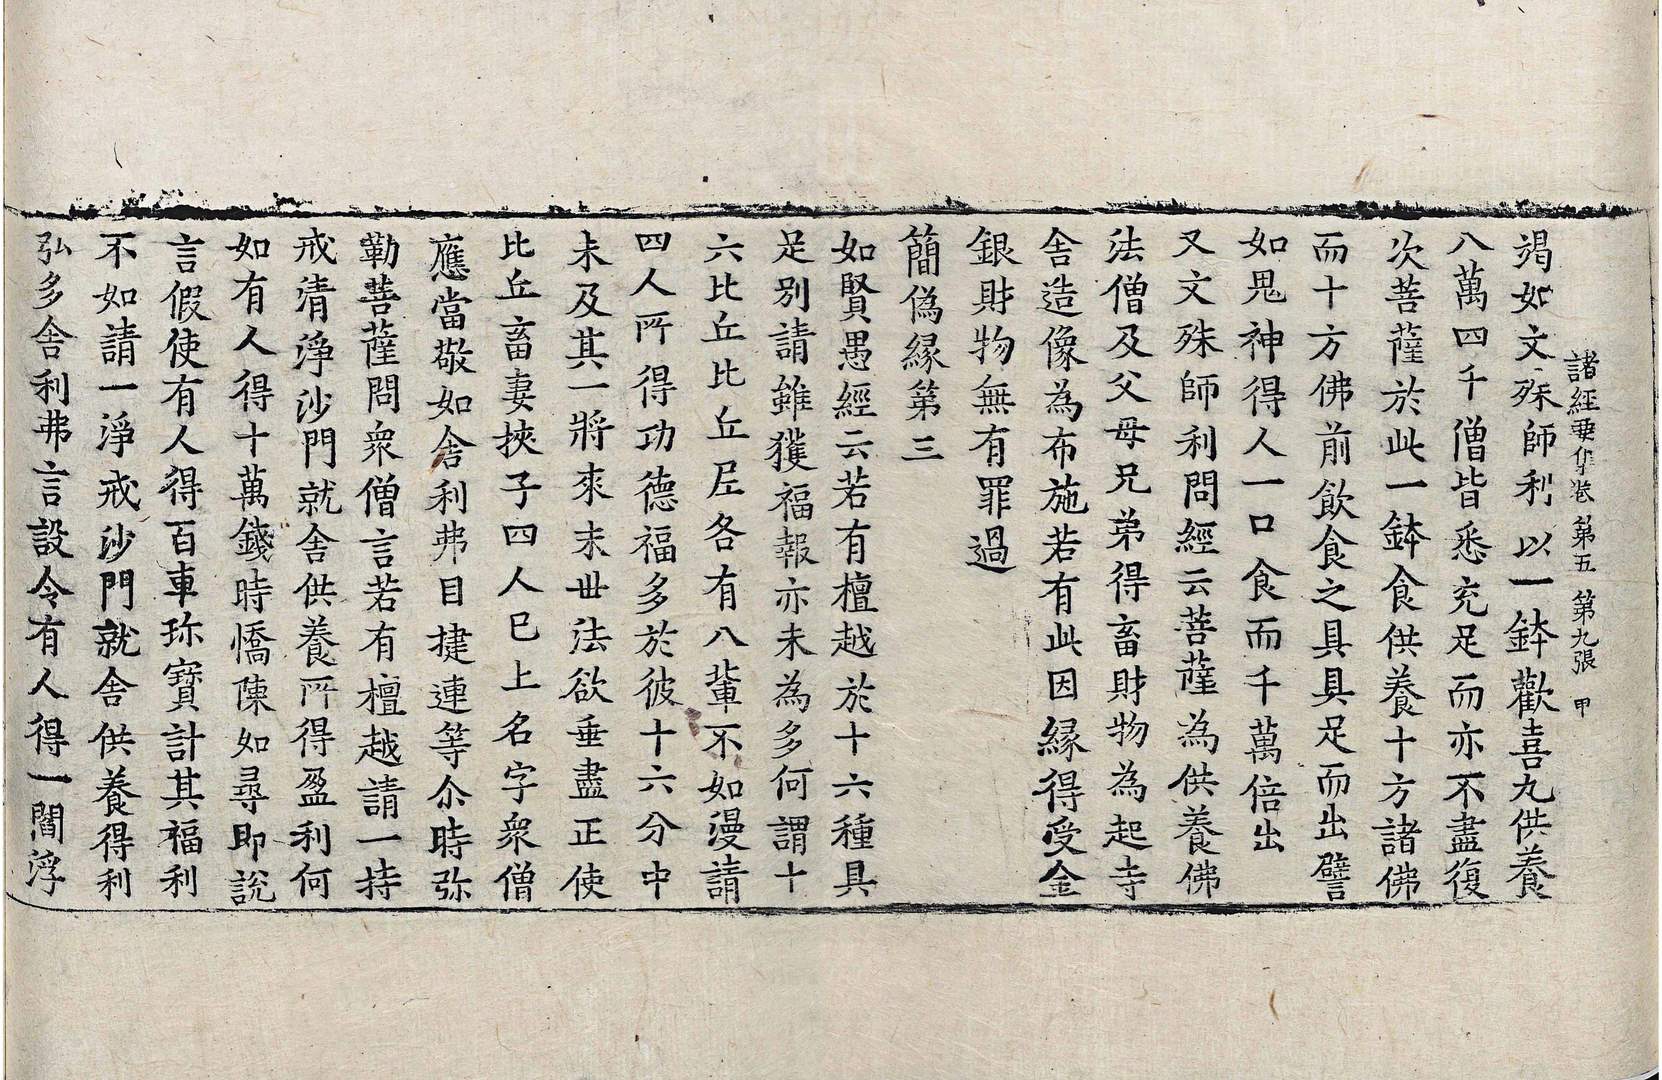 諸經要集卷第五 第九張 甲
竭如文殊師利以一鉢歡喜丸供養
八萬四千僧皆悉充足而亦不盡復
次菩薩於此一鉢食供養十方諸佛
而十方佛前飲食之具具足而出譬
如鬼神得人一口食而千萬倍出
又文殊師利問經云菩薩為供養佛
法僧及父母兄弟得畜財物為起寺
舍造像為布施若有此因緣得受金
銀財物無有罪過
簡偽緣第三
如賢愚經云若有檀越於十六種具
足別請雖獲福報亦未為多何謂十
六比丘比丘尼各有八輩不如漫請
四人所得功德福多於彼十六分中
未及其一將來末世法欲垂盡正使
比丘畜妻挾子四人已上名字衆僧
應當敬如舍利弗目揵連等尒時弥
勒菩薩問衆僧言若有檀越請一持
戒清淨沙門就舍供養所得盈利何
如有人得十萬錢時憍陳如尋即說
言假使有人得百車珎寶計其福利
不如請一淨戒沙門就舍供養得利
弘多舍利弗言設令有人得一閻浮